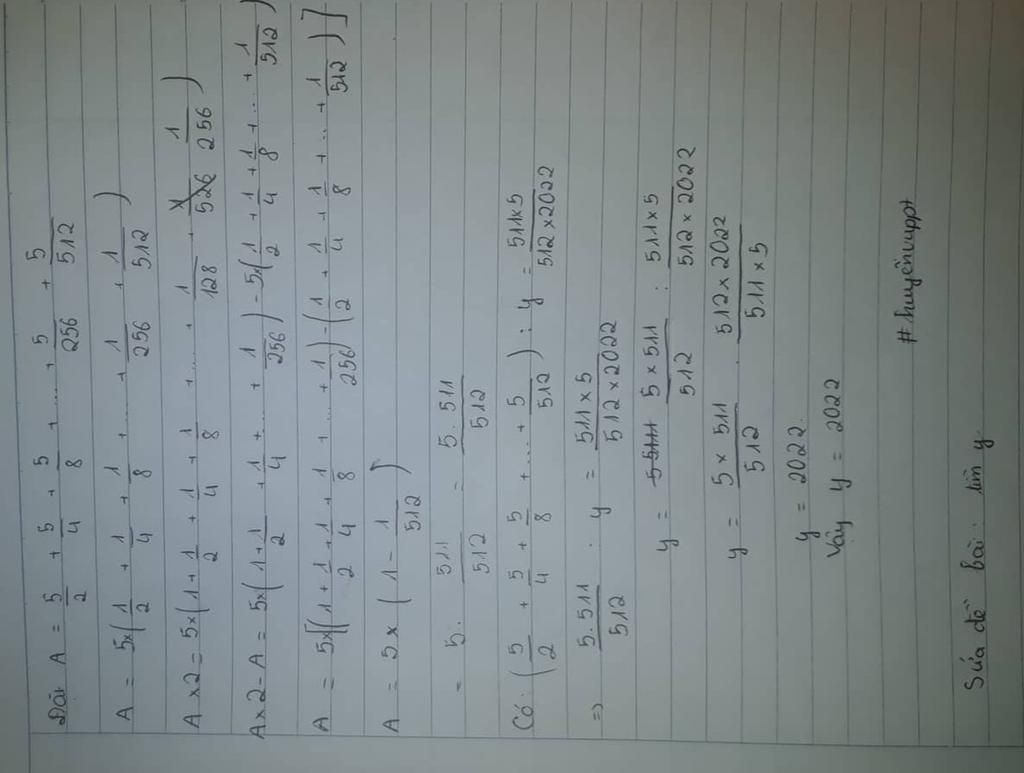 Đặt A = 5/2 + 5/4 + 5/8 + .... + 5/256 + 5/512
A = 5x(1/2 + 1/4 + 1/8 + .... + 1/256 + 1/512)
A x2 = 5x(1 + 1/2 + 1/4 + 1/8 + .... + 1/128 + 1/256)
Ax2 - A = 5x(1 + 1/2 + 1/4 + .... + 1/256) - 5x(1/2 + 1/4 + 1/8 + ... + 1/512)
A = 5x[(1 + 1/2 + 1/4 + 1/8 + ... + 1/256) - (1/2 + 1/4 + 1/8 + .. + 1/512)]
A = 5 x (1 - 1/512)
= 5. 511/512 = 5.511/512
Có: (5/2 + 5/4 + 5/8 + ... + 5/512) : y = 511x5/512x2022
=> 5.511/512 : y = 511x5/512x2022
y = 5x511/512 : 511x5/512x2022
y = 5x511/512 . 512x2022/511x5
y = 2022.
Vậy y = 2022
#huyềnnuppt
Sửa đề bài: tìm y